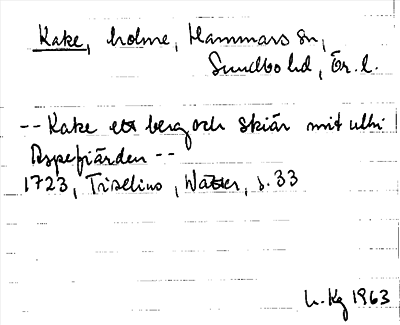 Kake, holme, Hammars sn,
Sundbo hd, Ör. l.
-- Kake ett berg och skiär mit uthi
Aspefiärden --
1723, Tiselius, Watter, s. 33
L. Kg 1963